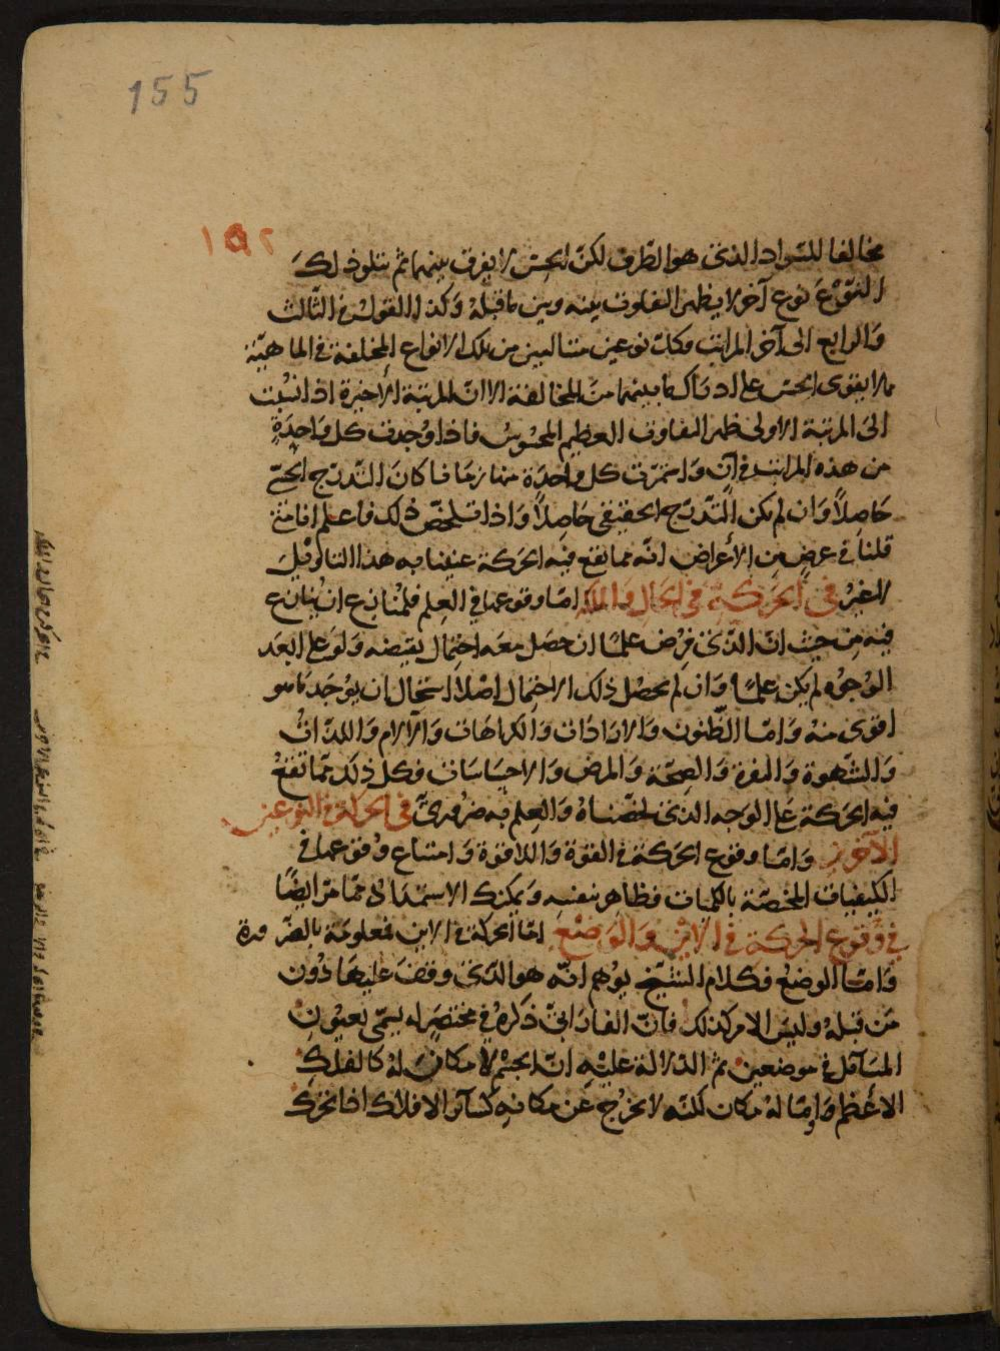 155
١٥٢
مخالفا للسّواد الذى هو الطّرف لكنّ الحسّ لا يفرق بينهما ثم يتلو ذلك
النّوْعَ نوع آخر لا يظهر التفاوت بينه وبين ما قبلهُ وَكذا القول فى الثّالث
وَالرابع الى آخر المراتب فكلّ نوعين متتاليين من تلك الانواع المختلفة فى الماهيّة
لا يقوى الحسّ على ادراك ما بينهما منَ المخالفة الا انّ المرتبة الأخيرة اذا نُسِبت
الىَ المرتبة الاولى ظهر التفاوت العظيم المحسُوسُ فاذا وُجدت كل وَاحِدَةٍ
من هذه المراتب فى آنٍ وَاستمرّت كل واحدَة منها زمَانا كانَ التّدرّج الحسّى
حَاصِلاً وَان لم يكن التّدرّج الحقيقى حَاصِلاً وَاذا تلخّصَ ذلك فاعلم انا متى
قلنا فى عرضٍ مِن الأعراض انّه مما تقع فيه الحَركة عنينا به هذا التاويل
لا غيرُ فى الحَرَكةِ فى الحَالِ وَالملَكة امّا وقوعها فى العِلم فلمُنازع ان يُنازع
فيه مِن حيث انّ الذّى فرُض علمًا ان حَصَل معَه احتمال نقيضه وَلو على ابعَد
الوُجوُه لم يكن علمًا وَان لم يحصُل ذلك الاحتمال اصْلاً استحال ان يوُجَد ما هو
اقوى منهُ وَامّا الظّنون وَالارَادَات وَالكراهَات وَالآلام وَاللذّاتُ
وَالشّهوة وَالنفرة وَالصِحّة وَالمرض وَالاحسَاسَات فكل ذلك ممّا تقعُ
فيه الحَركة عَلى الوَجه الذى لخّصنَاهُ وَالعِلم به ضرُورىٌّ فى الحركة فى النوعين
الآخرين وَامّا وقوع الحَركة فى القوّة وَاللاقوة وَ امتناع وُقوعها فى
الكيفيات المختصّة بالكميات فظاهر بنفسِه وَيمكنك الاستمدَادُ ممّا مرّ ايضًا
فى وُقوع الحركة فى الاَيْنِ وَالوَضْعِ امّا الحركة فى الاين فمعلومَة بالضّرورة
وَامّا الوضعُ فكلام الشّيخ يوُهم انّه هو الذى وقفَ عليهَا دُون
مَن قبلهُ وليسَ الامر كذلك فانّ الفارَابىّ ذكرهُ فى مختصَرٍ له يسمّى بعيُونِ
المسَآئل فى موضعين ثم الدّلالة عليْهِ انّ الجسْمَ لا مكانَ لهُ كالفلكِ
الاعْظم وَامّا لهُ مكان لكنّه لا يخرُج عَن مكانهِ كسَآئر الافلاك اذا تحرّك